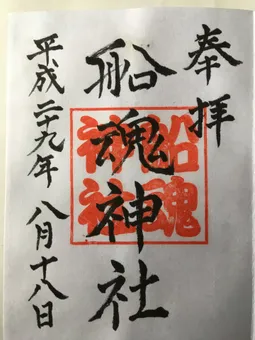 奉拝
船魂神社
船魂
神社
平成二十九年 八月十八日